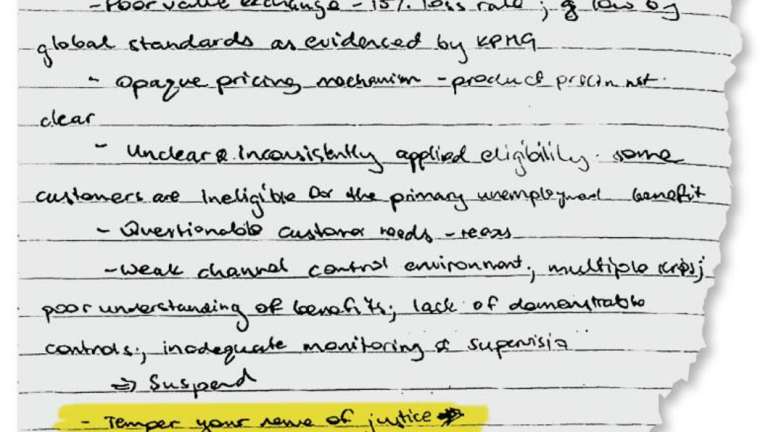 - Poor value exchange - 15% loss rate; & low by
global standards as evidenced by KPMG
- Opaque pricing mechanism - product not
clear
- Unclear & inconsistently applied eligibility. some
customers are ineligible for the primary unemployment benefit
- Questionable customer needs -
- Weak channel control environment; multiple
poor understanding of benefits; lack of demonstrable
controls; inadequate monitoring & supervision
=> Suspend
- Temper your sense of justice